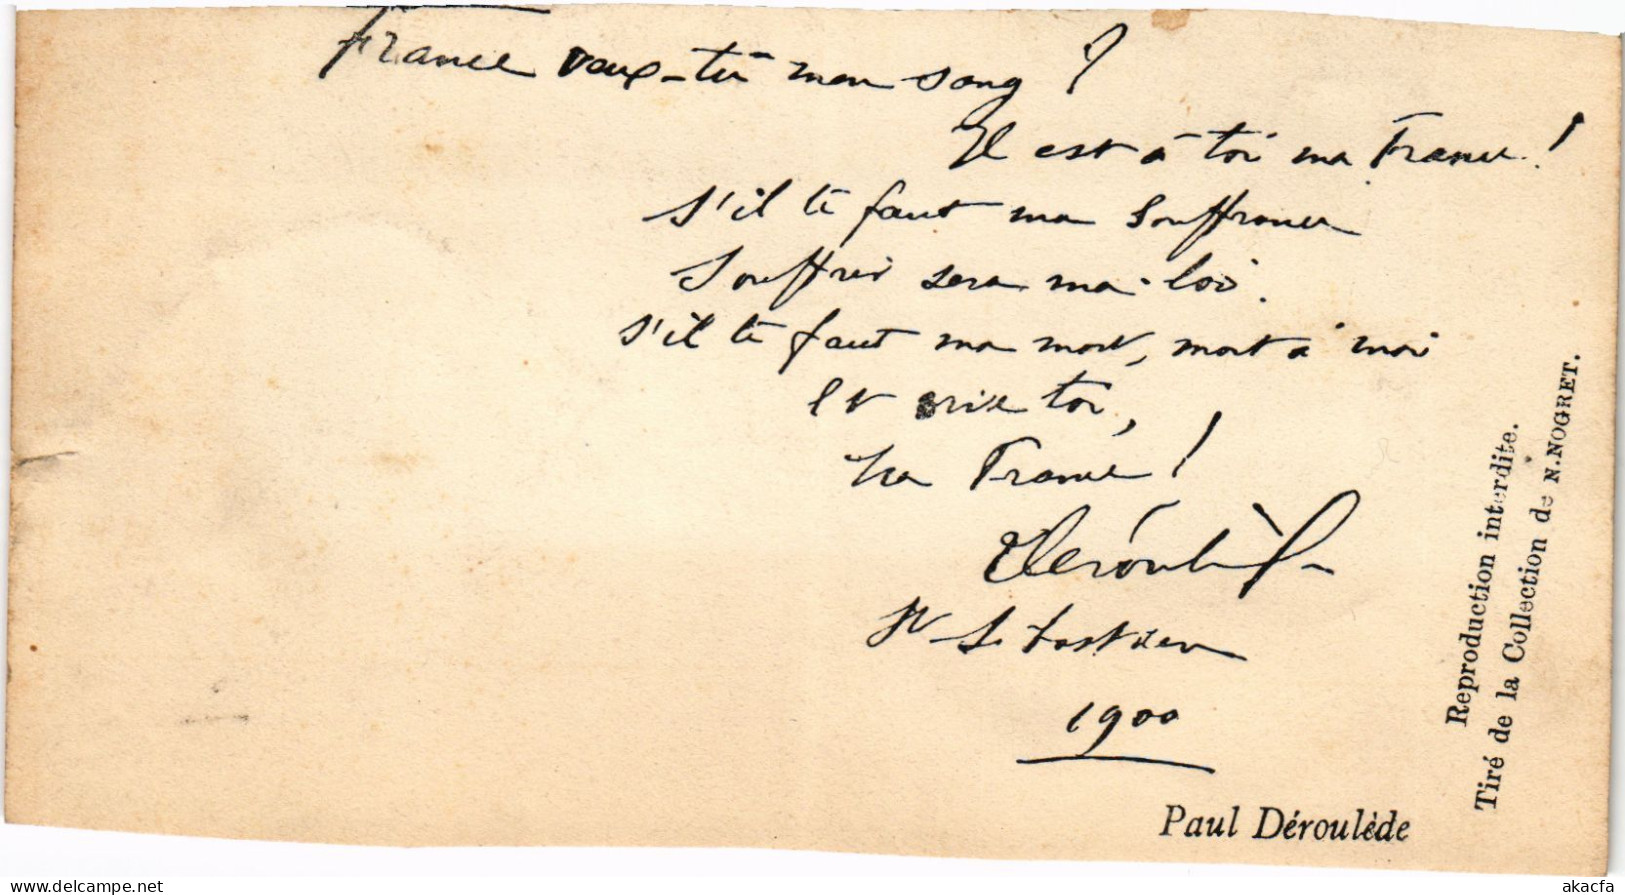 France veux-tu mon sang ?
Il est à toi ma France !
S'il te faut ma souffrance
Souffrir sera ma loi.
S'il te faut ma mort, mort à moi
Et vive toi,
Ma France !
Déroulède
St Sébastien
1900
Paul Déroulède
Reproduction interdite.
Tiré de la Collection de N. NOGRET.
www.delcampe.net
akacfa